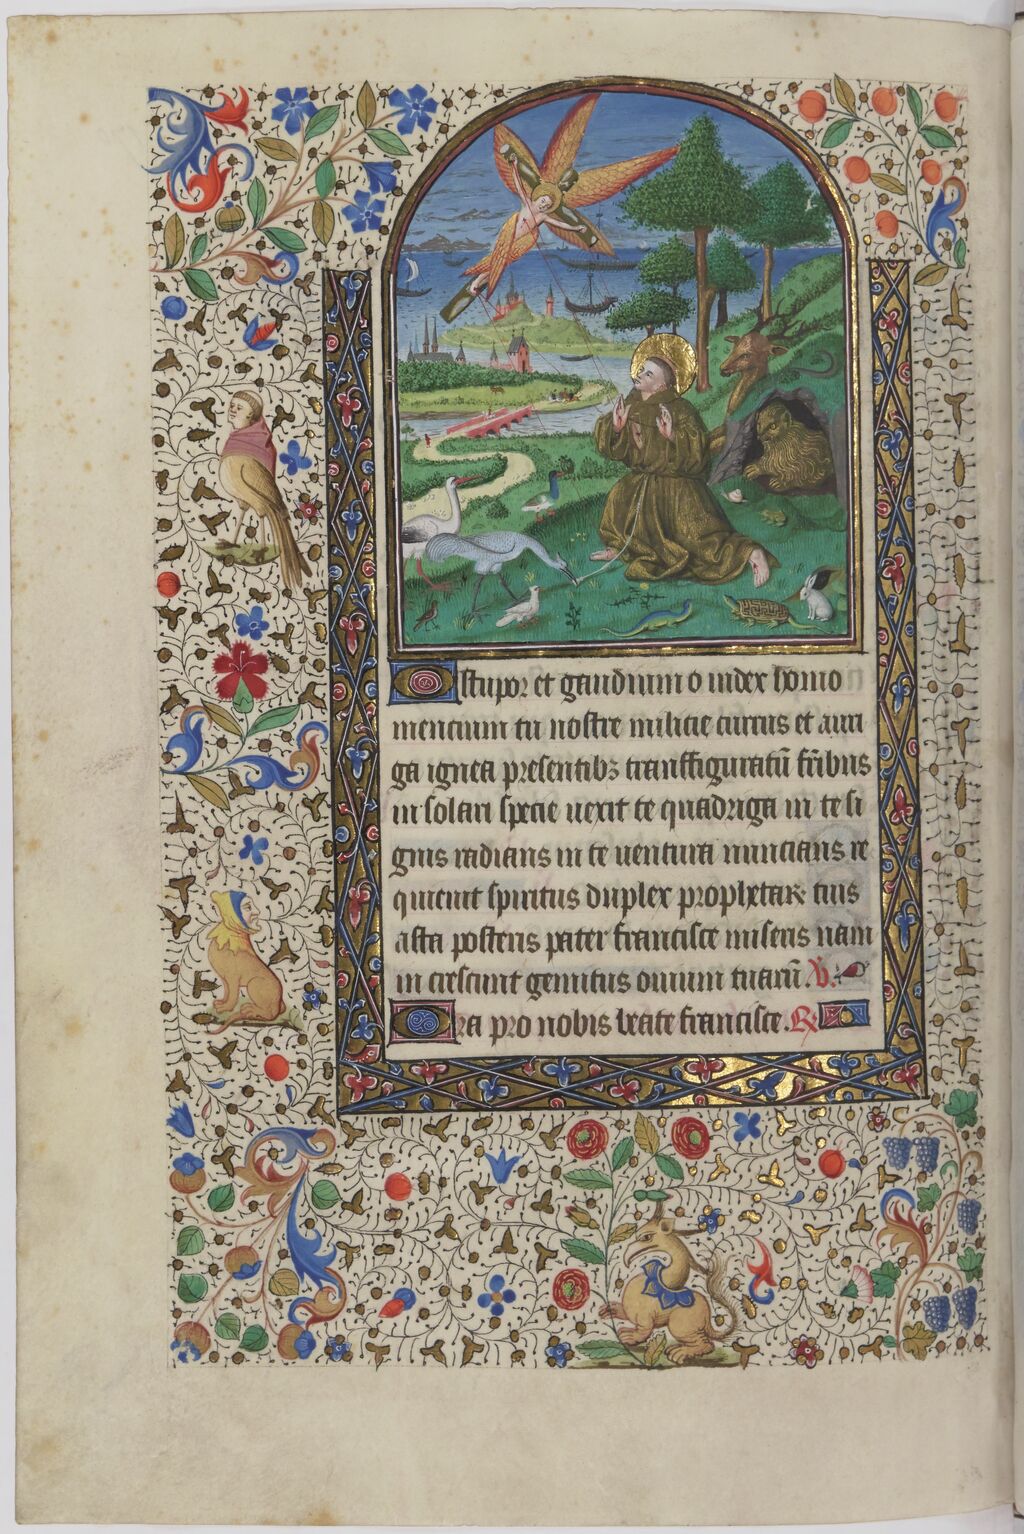 O stupor et gaudium o iudex homo
mencium tu nostre milicie currus et auri
ga ignea presentibꝫ transffiguratū fr̄ibus
in solari specie uexit te quadriga in te si
gnis radians in te uentura nuncians re
quieuit spiritus duplex prophetaꝝ tuis
asta posteris pater francisce miseris nam
in crescunt gemitus ouium tuarū. V̄.
Ora pro nobis beate francisce. R̄.